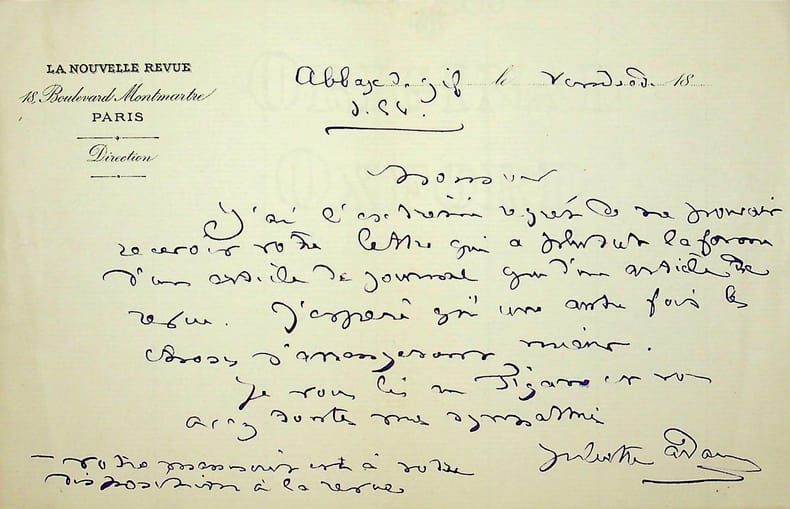 LA NOUVELLE REVUE
18, Boulevard Montmartre
PARIS
Direction
Abbaye de gif le vendredi 18
S. &
Monsieur
J'ai l'extrême regret de ne pouvoir
recevoir votre lettre qui a plutôt la forme
d'un article de journal que d'un article de
revue. J'espère qu'une autre fois les
choses s'arrangeront mieux.
Je vous lis au Figaro et vous
avez toutes mes sympathies
Juliette Adam
— votre manuscrit est à votre
disposition à la revue